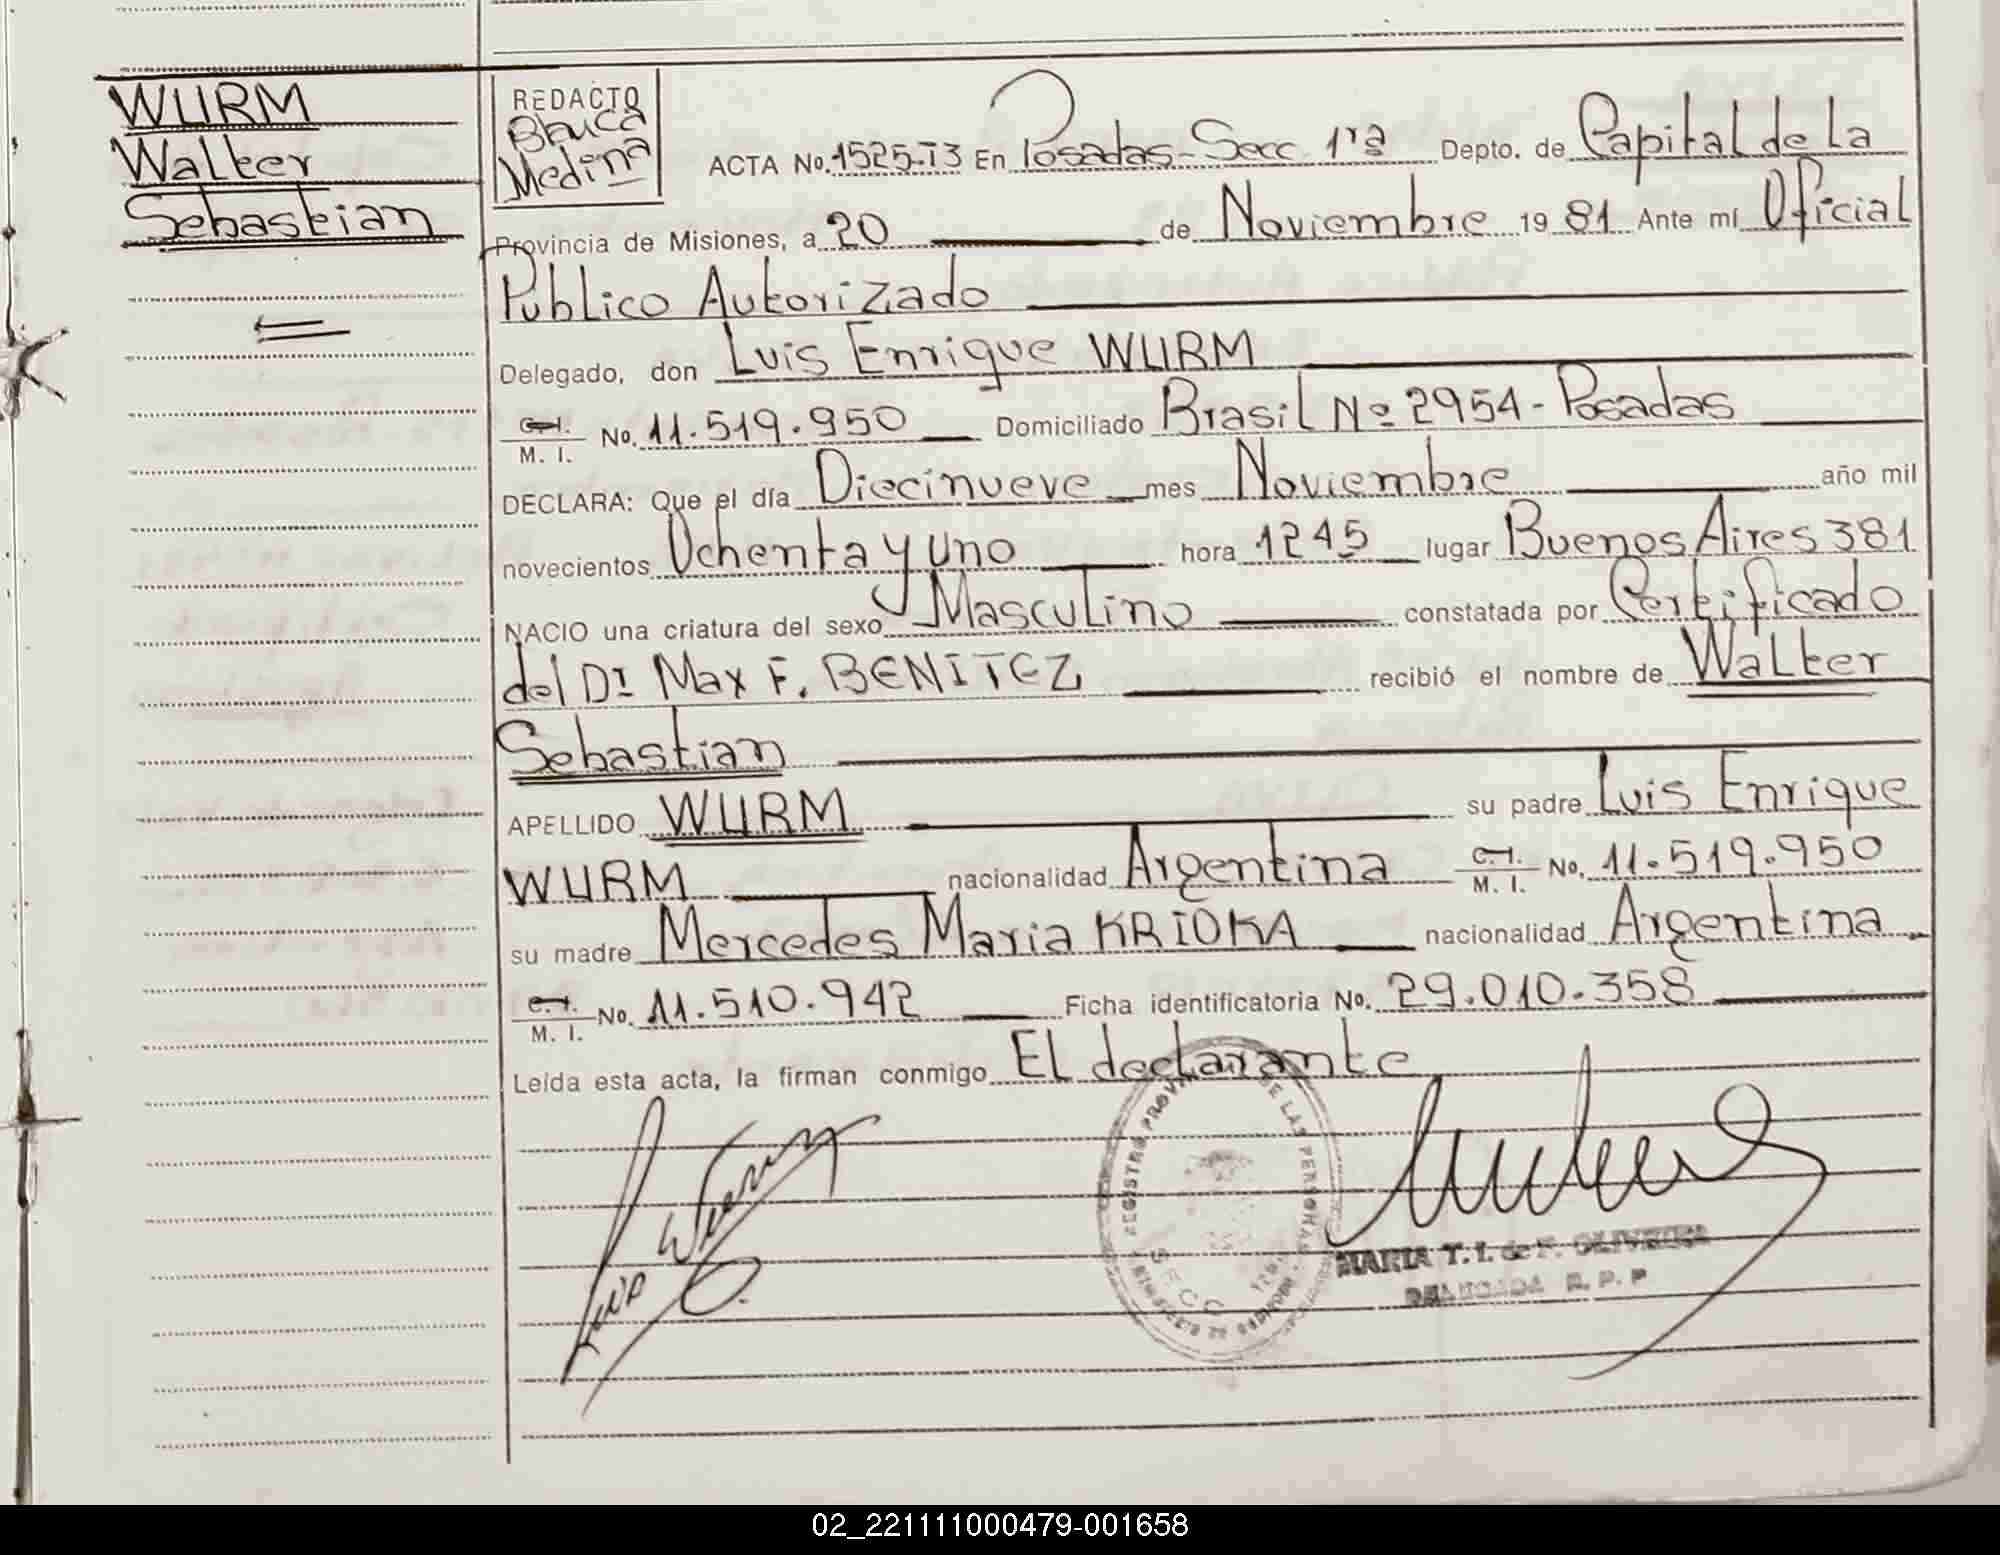 WURM
Walter
Sebastian
REDACTO
Blanca
Medina
ACTA No. 1525-T3 En Posadas-Secc 1ra Depto. de Capital de La
Provincia de Misiones, a 20 de Noviembre 1981 Ante mí Oficial
Publico Autorizado
Delegado, don Luis Enrique WURM
C.I. M. I. No. 11.519.950 Domiciliado Brasil Nº 2954-Posadas
DECLARA: Que el día Diecinueve mes Noviembre año mil
novecientos Ochenta y uno hora 1245 lugar Buenos Aires 381
NACIO una criatura del sexo Masculino constatada por Certificado
del Dr Max F. BENITEZ recibió el nombre de Walter
Sebastian
APELLIDO WURM su padre Luis Enrique
WURM nacionalidad Argentina C.I. M. I. No. 11.519.950
su madre Mercedes Maria KRIOKA nacionalidad Argentina
C.I. M. I. No. 11.510.942 Ficha identificatoria No. 29.010.358
Leída esta acta, la firman conmigo El declarante
Luis Wurm
REGISTRO PROV. DE LAS PERSONAS
SECC
MINISTERIO DE GOBIERNO
MARIA T. I. de F. OLIVEIRA
DELEGADA R. P. P
02_221111000479-001658